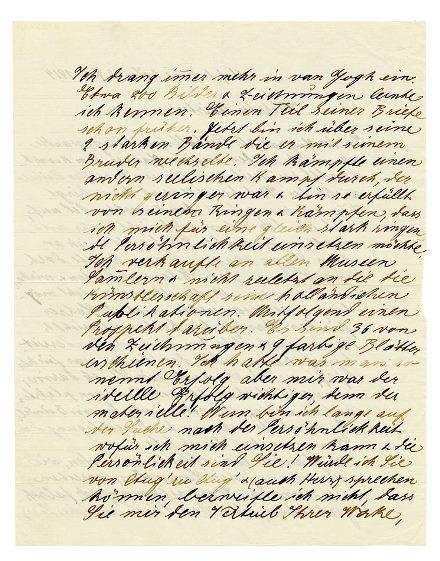 Ich drang im̅er mehr in van Gogh ein.
Etwa 200 Bilder & Zeichnungen lernte
ich kennen. Einen Teil seiner Briefe
schon früher. Jetzt bin ich über seine
2 starken Bände die er mit seinem
Bruder wechselte. Ich kämpfte einen
andern seelischen Kampf durch, der
nicht geringer war & bin so erfüllt
von seinem Ringen & Kämpfen, dass
ich mich für eine gleich stark ringen
de Persöhnlichkeit einsetzen möchte.
Ich verkaufte an allen Museen
Sam̅lern & nicht zuletzt an die die
Künstlerschaft seine holländischen
Publikationen. Mitfolgend einen
Prospekt darüber. Es sind 36 von
den Zeichnungen & 9 farbige Blätter
erschienen. Ich hatte was man so
nennt Erfolg aber mir war der
ideelle Erfolg wichtiger, denn der
materielle! Nun bin ich längs auf
der Suche nach der Persöhnlichkeit
wofür ich mich einsetzen kann & die
Persönlichkeit sind Sie! Würde ich Sie
von Aug' zu Aug' & (auch Herz) sprechen
können, bezweifle ich nicht, dass
Sie mir den Vertrieb Ihrer Werke,